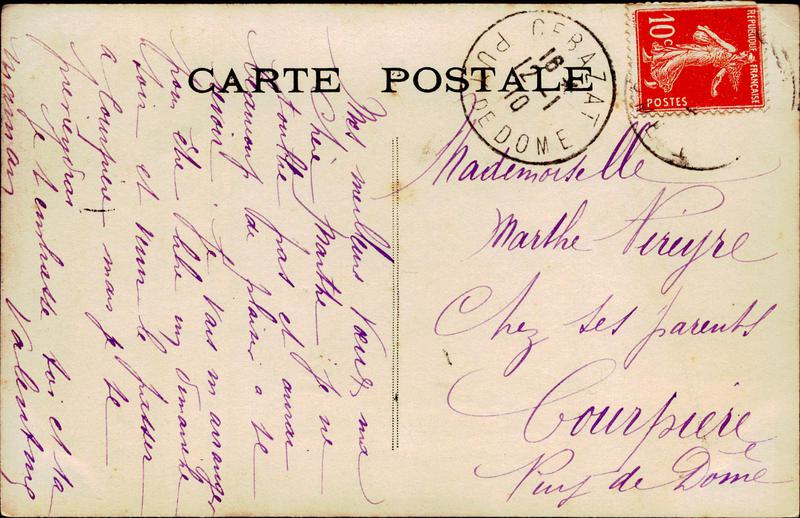 CARTE POSTALE
CEBAZAT
18
12-1
10
PUY DE DOME
REPUBLIQUE FRANÇAISE
10c
POSTES
Mademoiselle
Marthe Vireyre
Chez ses parents
Courpière
Puy de Dôme
Mes meilleurs Vœux ma
Chère Marthe je ne
t'oublie pas et aurai
beaucoup de plaisir a te
revoir. Je vais m'arranger
pour être libre un dimanche
soir et venir le passer
a Courpière mais je te
previendrai
Je t'embrasse toi et ta
maman Valentine